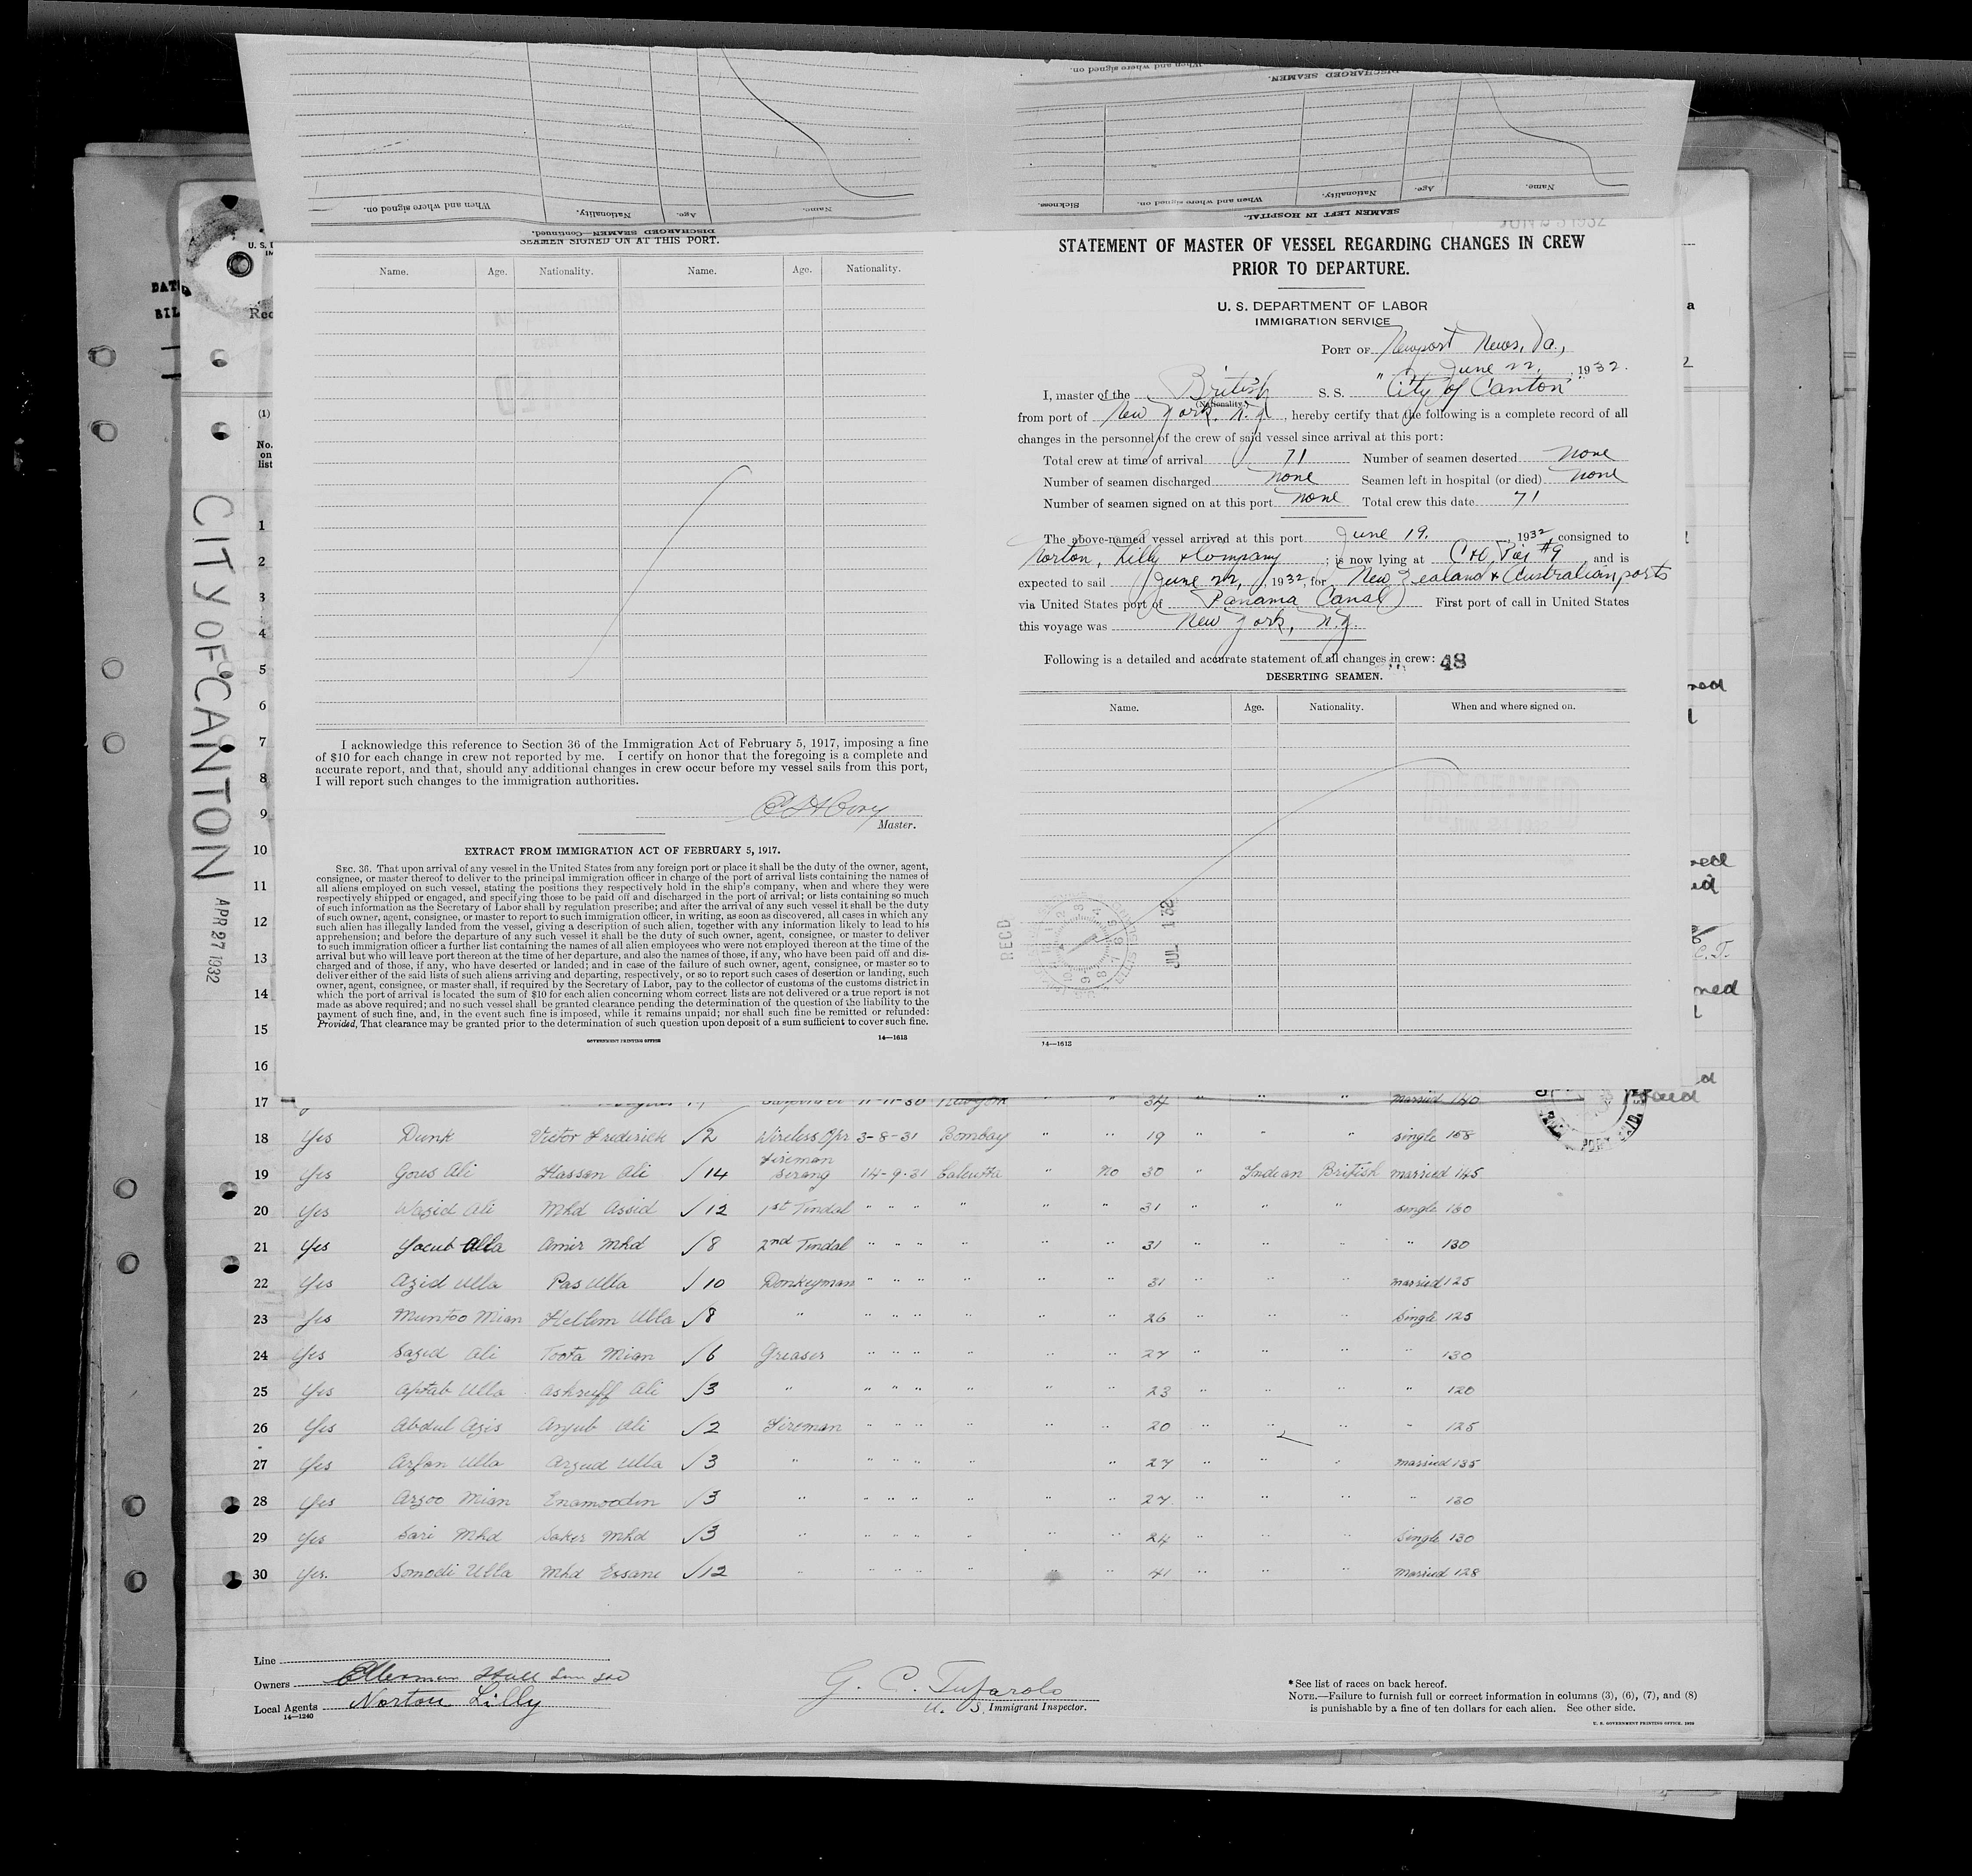 DISCHARGED SEAMEN.
When and where signed on.
Nationality.
Age.
Name.
Sickness.
When and where signed on.
Nationality.
Age.
Name.
DISCHARGED SEAMEN—Continued.
SEAMEN LEFT IN HOSPITAL.
SEAMEN SIGNED ON AT THIS PORT.
Name. Age. Nationality. Name. Age. Nationality.
I acknowledge this reference to Section 36 of the Immigration Act of February 5, 1917, imposing a fine
of $10 for each change in crew not reported by me. I certify on honor that the foregoing is a complete and
accurate report, and that, should any additional changes in crew occur before my vessel sails from this port,
I will report such changes to the immigration authorities.
Master.
EXTRACT FROM IMMIGRATION ACT OF FEBRUARY 5, 1917.
SEC. 36. That upon arrival of any vessel in the United States from any foreign port or place it shall be the duty of the owner, agent,
consignee, or master thereof to deliver to the principal immigration officer in charge of the port of arrival lists containing the names of
all aliens employed on such vessel, stating the positions they respectively hold in the ship's company, when and where they were
respectively shipped or engaged, and specifying those to be paid off and discharged in the port of arrival; or lists containing so much
of such information as the Secretary of Labor shall by regulation prescribe; and after the arrival of any such vessel it shall be the duty
of such owner, agent, consignee, or master to report to such immigration officer, in writing, as soon as discovered, all cases in which any
such alien has illegally landed from the vessel, giving a description of such alien, together with any information likely to lead to his
apprehension; and before the departure of any such vessel it shall be the duty of such owner, agent, consignee, or master to deliver
to such immigration officer a further list containing the names of all alien employees who were not employed thereon at the time of the
arrival but who will leave port thereon at the time of her departure, and also the names of those, if any, who have been paid off and dis-
charged and of those, if any, who have deserted or landed; and in case of the failure of such owner, agent, consignee, or master so to
deliver either of the said lists of such aliens arriving and departing, respectively, or so to report such cases of desertion or landing, such
owner, agent, consignee, or master shall, if required by the Secretary of Labor, pay to the collector of customs of the customs district in
which the port of arrival is located the sum of $10 for each alien concerning whom correct lists are not delivered or a true report is not
made as above required; and no such vessel shall be granted clearance pending the determination of the question of the liability to the
payment of such fine, and, in the event such fine is imposed, while it remains unpaid; nor shall such fine be remitted or refunded:
Provided, That clearance may be granted prior to the determination of such question upon deposit of a sum sufficient to cover such fine.
GOVERNMENT PRINTING OFFICE 14—1613
STATEMENT OF MASTER OF VESSEL REGARDING CHANGES IN CREW
PRIOR TO DEPARTURE.
U. S. DEPARTMENT OF LABOR
IMMIGRATION SERVICE
PORT OF Newport News, Va.,
June 22, 1932.
I, master of the British S. S. "City of Canton"
(Nationality)
from port of New York, N.Y., hereby certify that the following is a complete record of all
changes in the personnel of the crew of said vessel since arrival at this port:
Total crew at time of arrival 71 Number of seamen deserted none
Number of seamen discharged none Seamen left in hospital (or died) none
Number of seamen signed on at this port none Total crew this date 71
The above-named vessel arrived at this port June 19, 1932, consigned to
Norton, Lilly & Company; is now lying at C&O Pier #9 and is
expected to sail June 22, 1932, for New Zealand & Australian ports
via United States port of Panama Canal First port of call in United States
this voyage was New York, N.Y.
Following is a detailed and accurate statement of all changes in crew: 48
DESERTING SEAMEN.
Name. Age. Nationality. When and where signed on.
RECD
JUL 1 32
14—1613
CITY OF CANTON APR 27 1932
(1)
No.
on
list
1
2
3
4
5
6
7
8
9
10
11
12
13
14
15
16
17 11-11-30 New York " " 34 " " " married 140
18 Yes Dunk Victor Frederick √2 Wireless Opr 3-8-31 Bombay " " 19 " " " single 158
19 Yes Gous Ali Hassan Ali √14 Fireman Serang 14-9-31 Calcutta " no 30 " Indian British married 145
20 Yes Wazid Ali Mhd Assid √12 1st Tindal " " " " " " 31 " " " single 160
21 Yes Yacub Alla Amir Mhd √8 2nd Tindal " " " " " " 31 " " " " 130
22 Yes Azid Ulla Pas Ulla √10 Donkeyman " " " " " " 31 " " " married 125
23 Yes Muntoo Mian Kellem Ulla √8 " " " " " " " 26 " " " single 125
24 Yes Sazid Ali Toota Mian √6 Greaser " " " " " " 27 " " " " 130
25 Yes Aftab Ulla Ashruff Ali √3 " " " " " " " 23 " " " " 120
26 Yes Abdul Azis Anjub Ali √2 Fireman " " " " " " 20 " " " " 125
27 Yes Arfan Ulla Arzud Ulla √3 " " " " " " 27 " " " married 135
28 Yes Arzoo Mian Enamoodin √3 " " " " " " " 27 " " " " 130
29 Yes Sari Mhd Saker Mhd √3 " " " " " " " 24 " " " single 130
30 Yes. Somodi Ulla Mhd Essane √12 " " " " " " 41 " " " married 128
Line
Owners Ellerman Hall Line Ltd
Local Agents Norton Lilly
14—1240
G. C. Tufarolo
U. S. Immigrant Inspector.
*See list of races on back hereof.
NOTE.—Failure to furnish full or correct information in columns (3), (6), (7), and (8)
is punishable by a fine of ten dollars for each alien. See other side.
U. S. GOVERNMENT PRINTING OFFICE